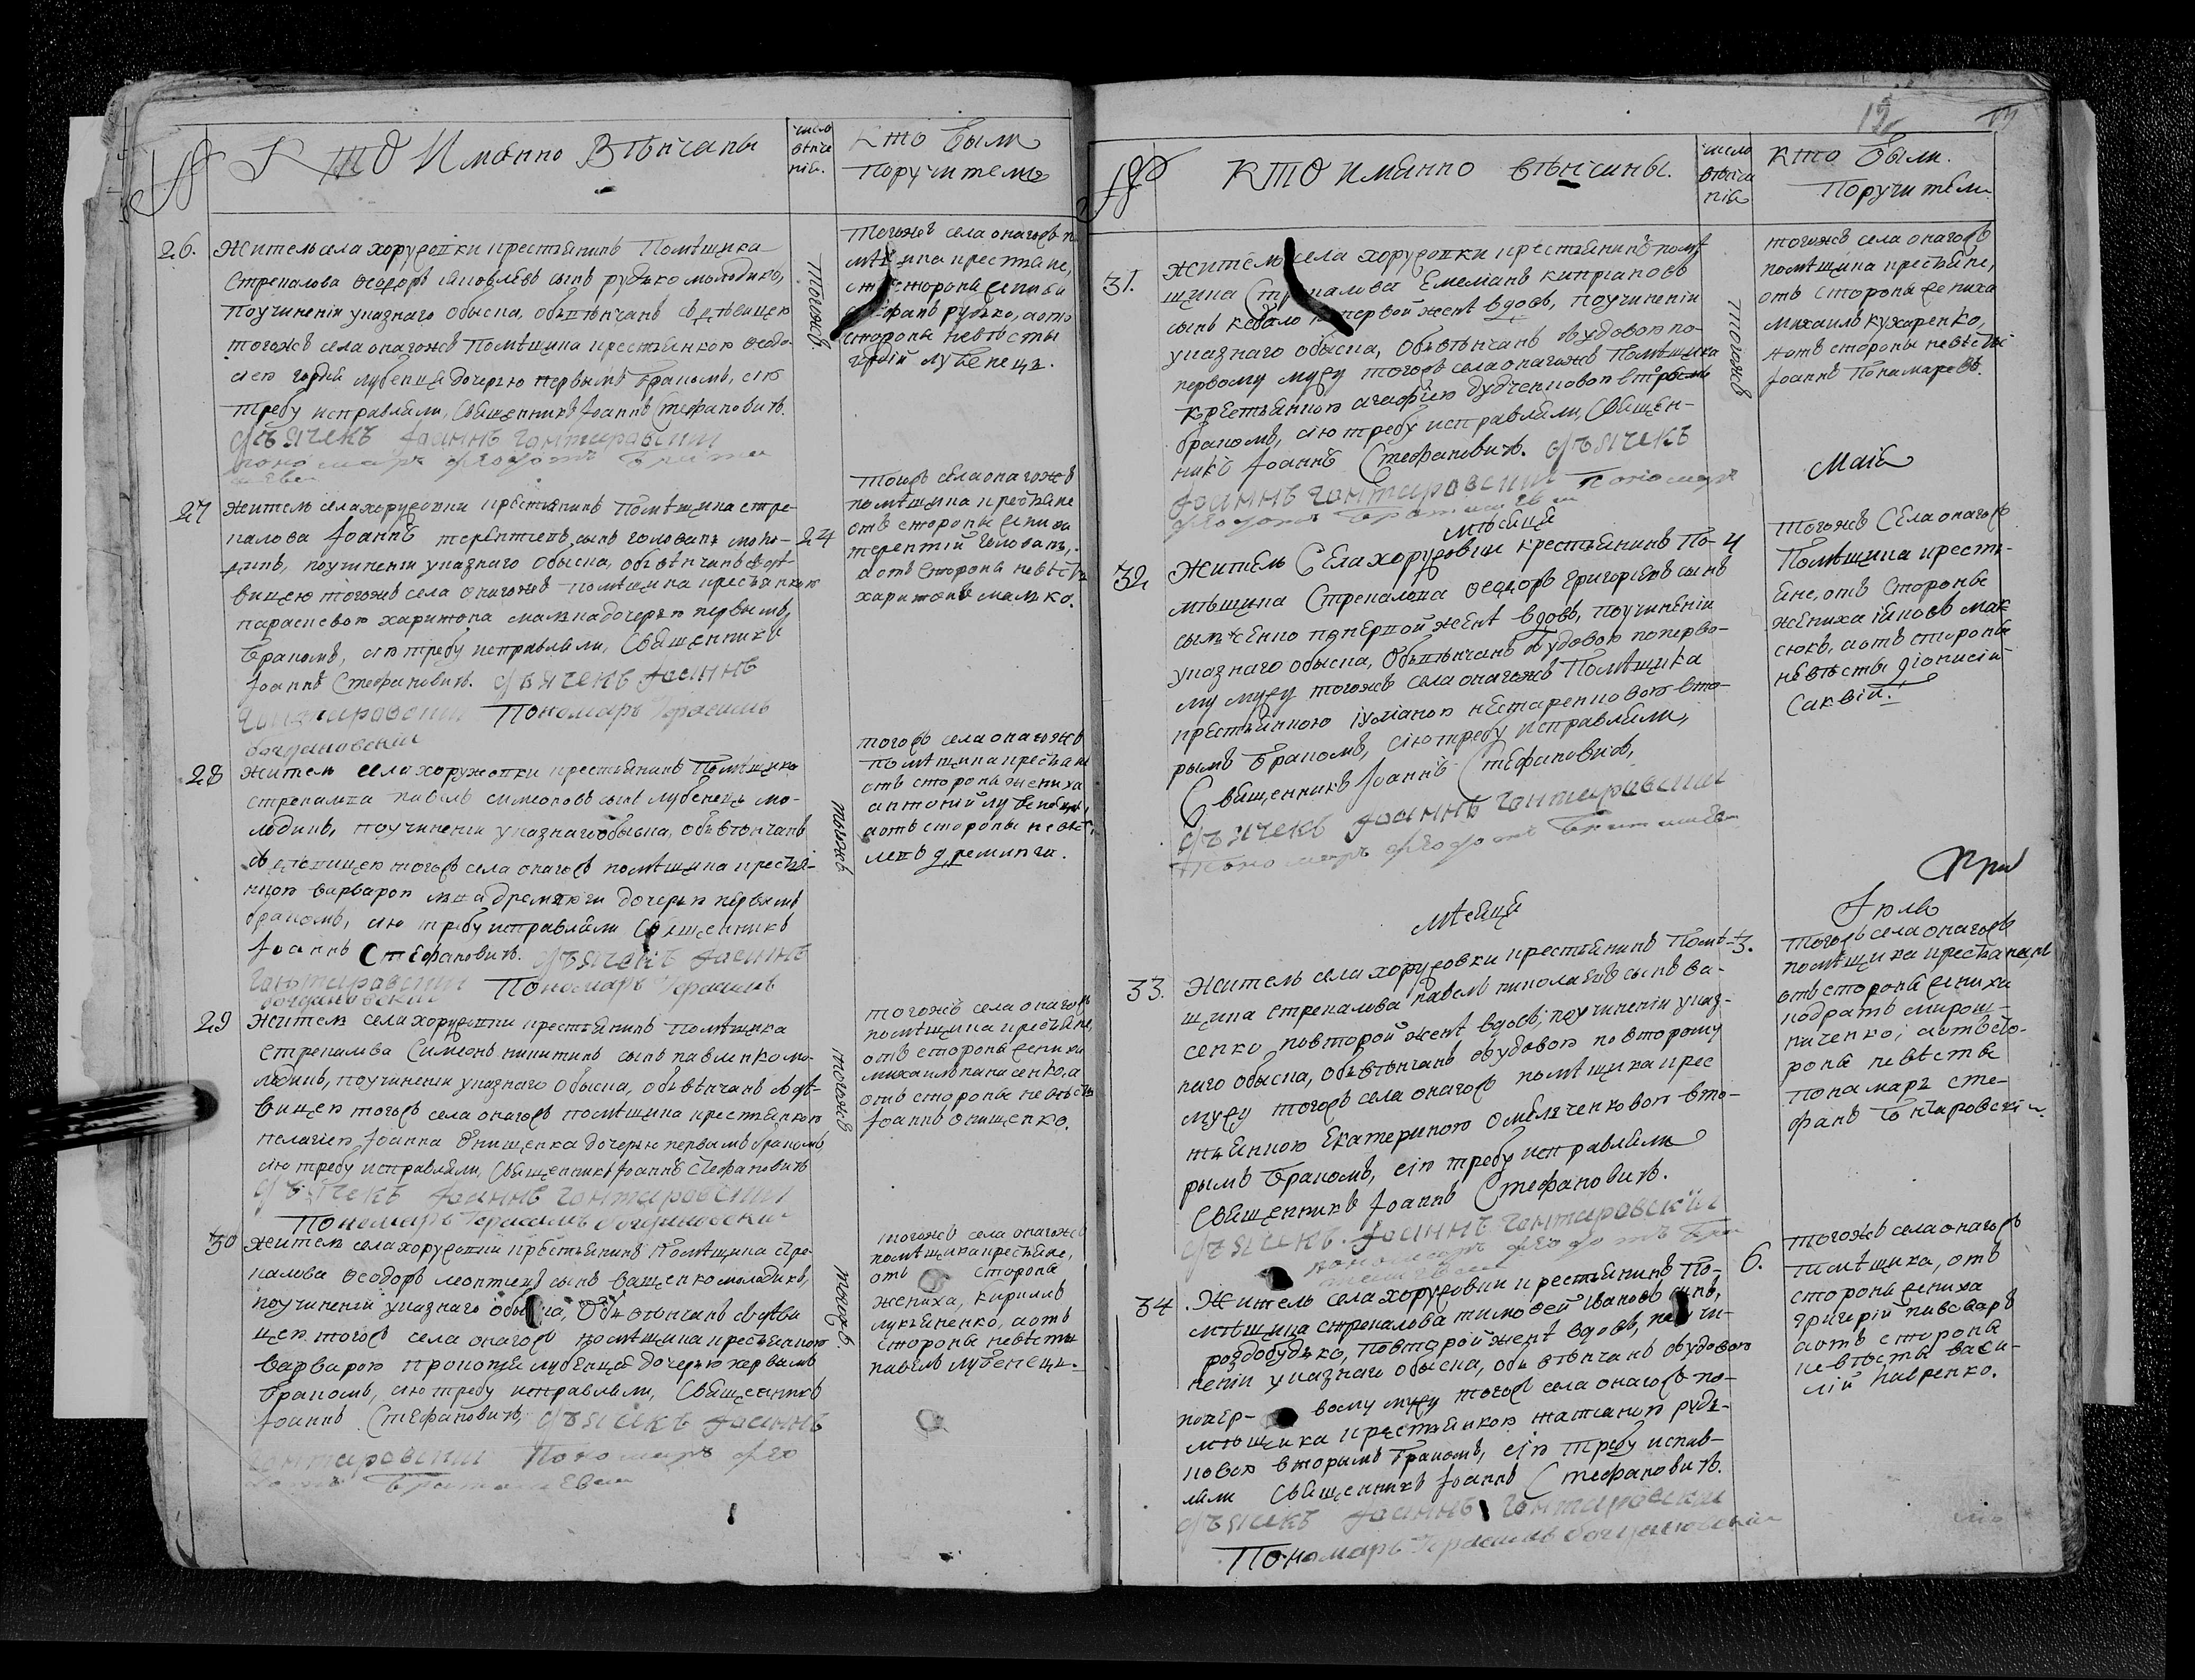 №
Кто Именно Вѣнчаны
число
вѣнча
нія.
Кто были
поручители
26. Жители села хоружовки крестьянинъ Помѣщика
Стрекалова Ѳеодоръ Іяковлевъ сынъ рудько молодикъ,
поучиненіи указнаго обыска, обвѣнчанъ здѣвицею
тогожъ села онагожъ Помѣщика крестьянкою Ѳеодо-
сіею гордія лубенця дочерью первымъ бракомъ, сію
требу исправляли, Священникъ Іоаннъ Стефановичъ.
Дьячекъ Іоаннъ Гонтаровскии
пономаръ Федотъ
тогожъ
тогожъ села онагожъ по
мѣщика крестьяне,
стороны жениха
рудько, аотъ
стороны невѣсты
гордій лубенецъ.
27 Житель села хоружовки крестьянинъ Помѣщика стре-
калова Іоаннъ терентиевъ сынъ голованъ моло-
дикъ, поучиненіи указнаго обыска, обвѣнчанъ здѣ-
вицею тогожъ села онагожъ помѣщика крестьянкою
параскевою харитона мамка дочерью первымъ
бракомъ, сію требу исправляли, Священникъ
Іоаннъ Стефановичъ. Дьячекъ Іоаннъ
Гонтаровскии Пономаръ Герасимъ
богдановскіи
24
тогожъ села онагожъ
помѣщика крестьяне
отъ стороны жениха
терентій Голованъ,
аотъ стороны невѣсты
харитонъ мамко.
28 Житель села хоружовки крестьянинъ Помѣщика
стрекалова павелъ симеоновъ сынъ лубенецъ мо-
лодикъ, поучиненіи указнаго обыска, обвѣнчанъ
здѣвицею тогожъ села онагожъ помѣщика крестья-
нкою варварою дремлюги дочерью первымъ
бракомъ, сію требу исправляли Священникъ
Іоаннъ Стефановичъ. Дьячекъ Іоаннъ
Гонтаровскии Пономаръ Герасимъ
богдановскии
тогожъ
тогожъ села онагожъ
помѣщика крестьяне
отъ стороны жениха
антоній лубенецъ,
аотъ стороны невѣс
29 Житель села хоружовки крестьянинъ помѣщика
стрекалова Симеонъ никитинъ сынъ павленко мо-
лодикъ, поучиненіи указнаго обыска, обвѣнчанъ здѣ-
вицею тогожъ села онагожъ помѣщика крестьянкою
пелагіею Іоанна Онищенка дочерью первымъ бракомъ,
сію требу исправляли, Священникъ Іоаннъ Стефановичъ
Дьячекъ Іоаннъ Гонтаровскии
Пономаръ Герасимъ богдановскіи
тогожъ
тогожъ села онагожъ
помѣщика крестьяне,
отъ стороны жениха
михаилъ панасенко, а
отъ стороны невѣсты
Іоаннъ онищенко.
30 Житель села хоружовки крестьянинъ Помѣщика стре-
калова Ѳеодоръ леонтиевъ сынъ ващенко молодикъ,
поучиненіи указнаго обыска, обвѣнчанъ здѣви
цею тогожъ села онагожъ помѣщика крестьянкою
варварою прокопія лубенца дочерью первымъ
бракомъ, сію требу исправляли, Священникъ
Іоаннъ Стефановичъ, Дьячекъ Іоаннъ
Гонтаровскии Пономаръ Фео
тогожъ
тогожъ села онагожъ
помѣщика крестьяне,
отъ стороны
жениха, кирилъ
лукьяненко, аотъ
стороны невѣсты
павелъ лубенецъ.
№
Кто именно вѣнчаны.
число
вѣнча
нія
Кто были.
поручители
31. Житель села хоружовки крестьянинъ помѣ
щика Стрекалова Емеліянъ кипріановъ
сынъ первой женѣ вдовъ, поучиненіи
указнаго обыска, обвѣнчанъ звудовою по-
первому мужу тогожъ села онагожъ Помѣщика
крестьянкою агафіею дудченковою вторымъ
бракомъ, сію требу исправляли, Священ-
никъ Іоаннъ Стефановичъ. Дьячекъ
Іоаннъ Гонтаровскии Пономаръ
тогожъ
тогожъ села онагожъ
помѣщика крестьяне,
отъ стороны жениха
михаилъ кухаренко,
аотъ стороны невѣсты
Іоаннъ Понамаревъ.
мѣсяця
Маія
32 Житель Села хоружовки крестьянинъ По-
мѣщика Стрекалова Ѳеодоръ григориевъ сынъ
первой женѣ вдовъ, поучиненіи
указнаго обыска, обвѣнчанъ звудовою поперво-
му мужу тогожъ села онагожъ Помѣщика
крестьянкою іуліаною нестаренковою вто-
рымъ бракомъ, сію требу исправляли,
Священникъ Іоаннъ Стефановичъ,
Дьячекъ Іоаннъ Гонтаровскии
Пономаръ Федотъ
4
тогожъ Села онагожъ
Помѣщика кресть-
яне, отъ стороны
жениха іяковъ мак
сюкъ, аотъ стороны
невѣсты діонисій
Саквій.
мѣсяця
Іюля
33. Житель села хоружовки крестьянинъ помѣ-
щика стрекалова павелъ николаевъ сынъ ва-
сенко повторой женѣ вдовъ, поучиненіи указ-
наго обыска, обвѣнчанъ звудовою повторому
мужу тогожъ села онагожъ помѣщика крес
тьянкою Екатериною Омеляченковою вто-
рымъ бракомъ, сію требу исправляли
Священникъ Іоаннъ Стефановичъ.
Дьячекъ. Іоаннъ Гонтаровскій
пономаръ Федотъ
3.
тогожъ села онагожъ
помѣщика крестьяне,
отъ стороны жениха
кодратъ мирош-
ниченко, аотъ сто-
роны невѣсты
понамаръ сте-
фанъ Гонтаровскіи.
34. Житель села хоружовки крестьянинъ По-
мѣщика стрекалова тимофей Ивановъ сынъ,
роздобудько, повторой женѣ вдовъ, поучи-
неніи указнаго обыска, обвѣнчанъ звудовою
попер- вому мужу тогожъ села онагожъ по-
мѣщика крестьянкою татіаною рудь-
ковою вторымъ бракомъ, сію требу исправ-
ляли Священникъ Іоаннъ Стефановичъ.
Дьячекъ Іоаннъ Гонтаровскии
Пономаръ Герасимъ богдановскіи
6.
тогожъ села онагожъ
помѣщика, отъ
стороны жениха
григорій пивоваръ
аотъ стороны
невѣсты васи-
лій лавренко.